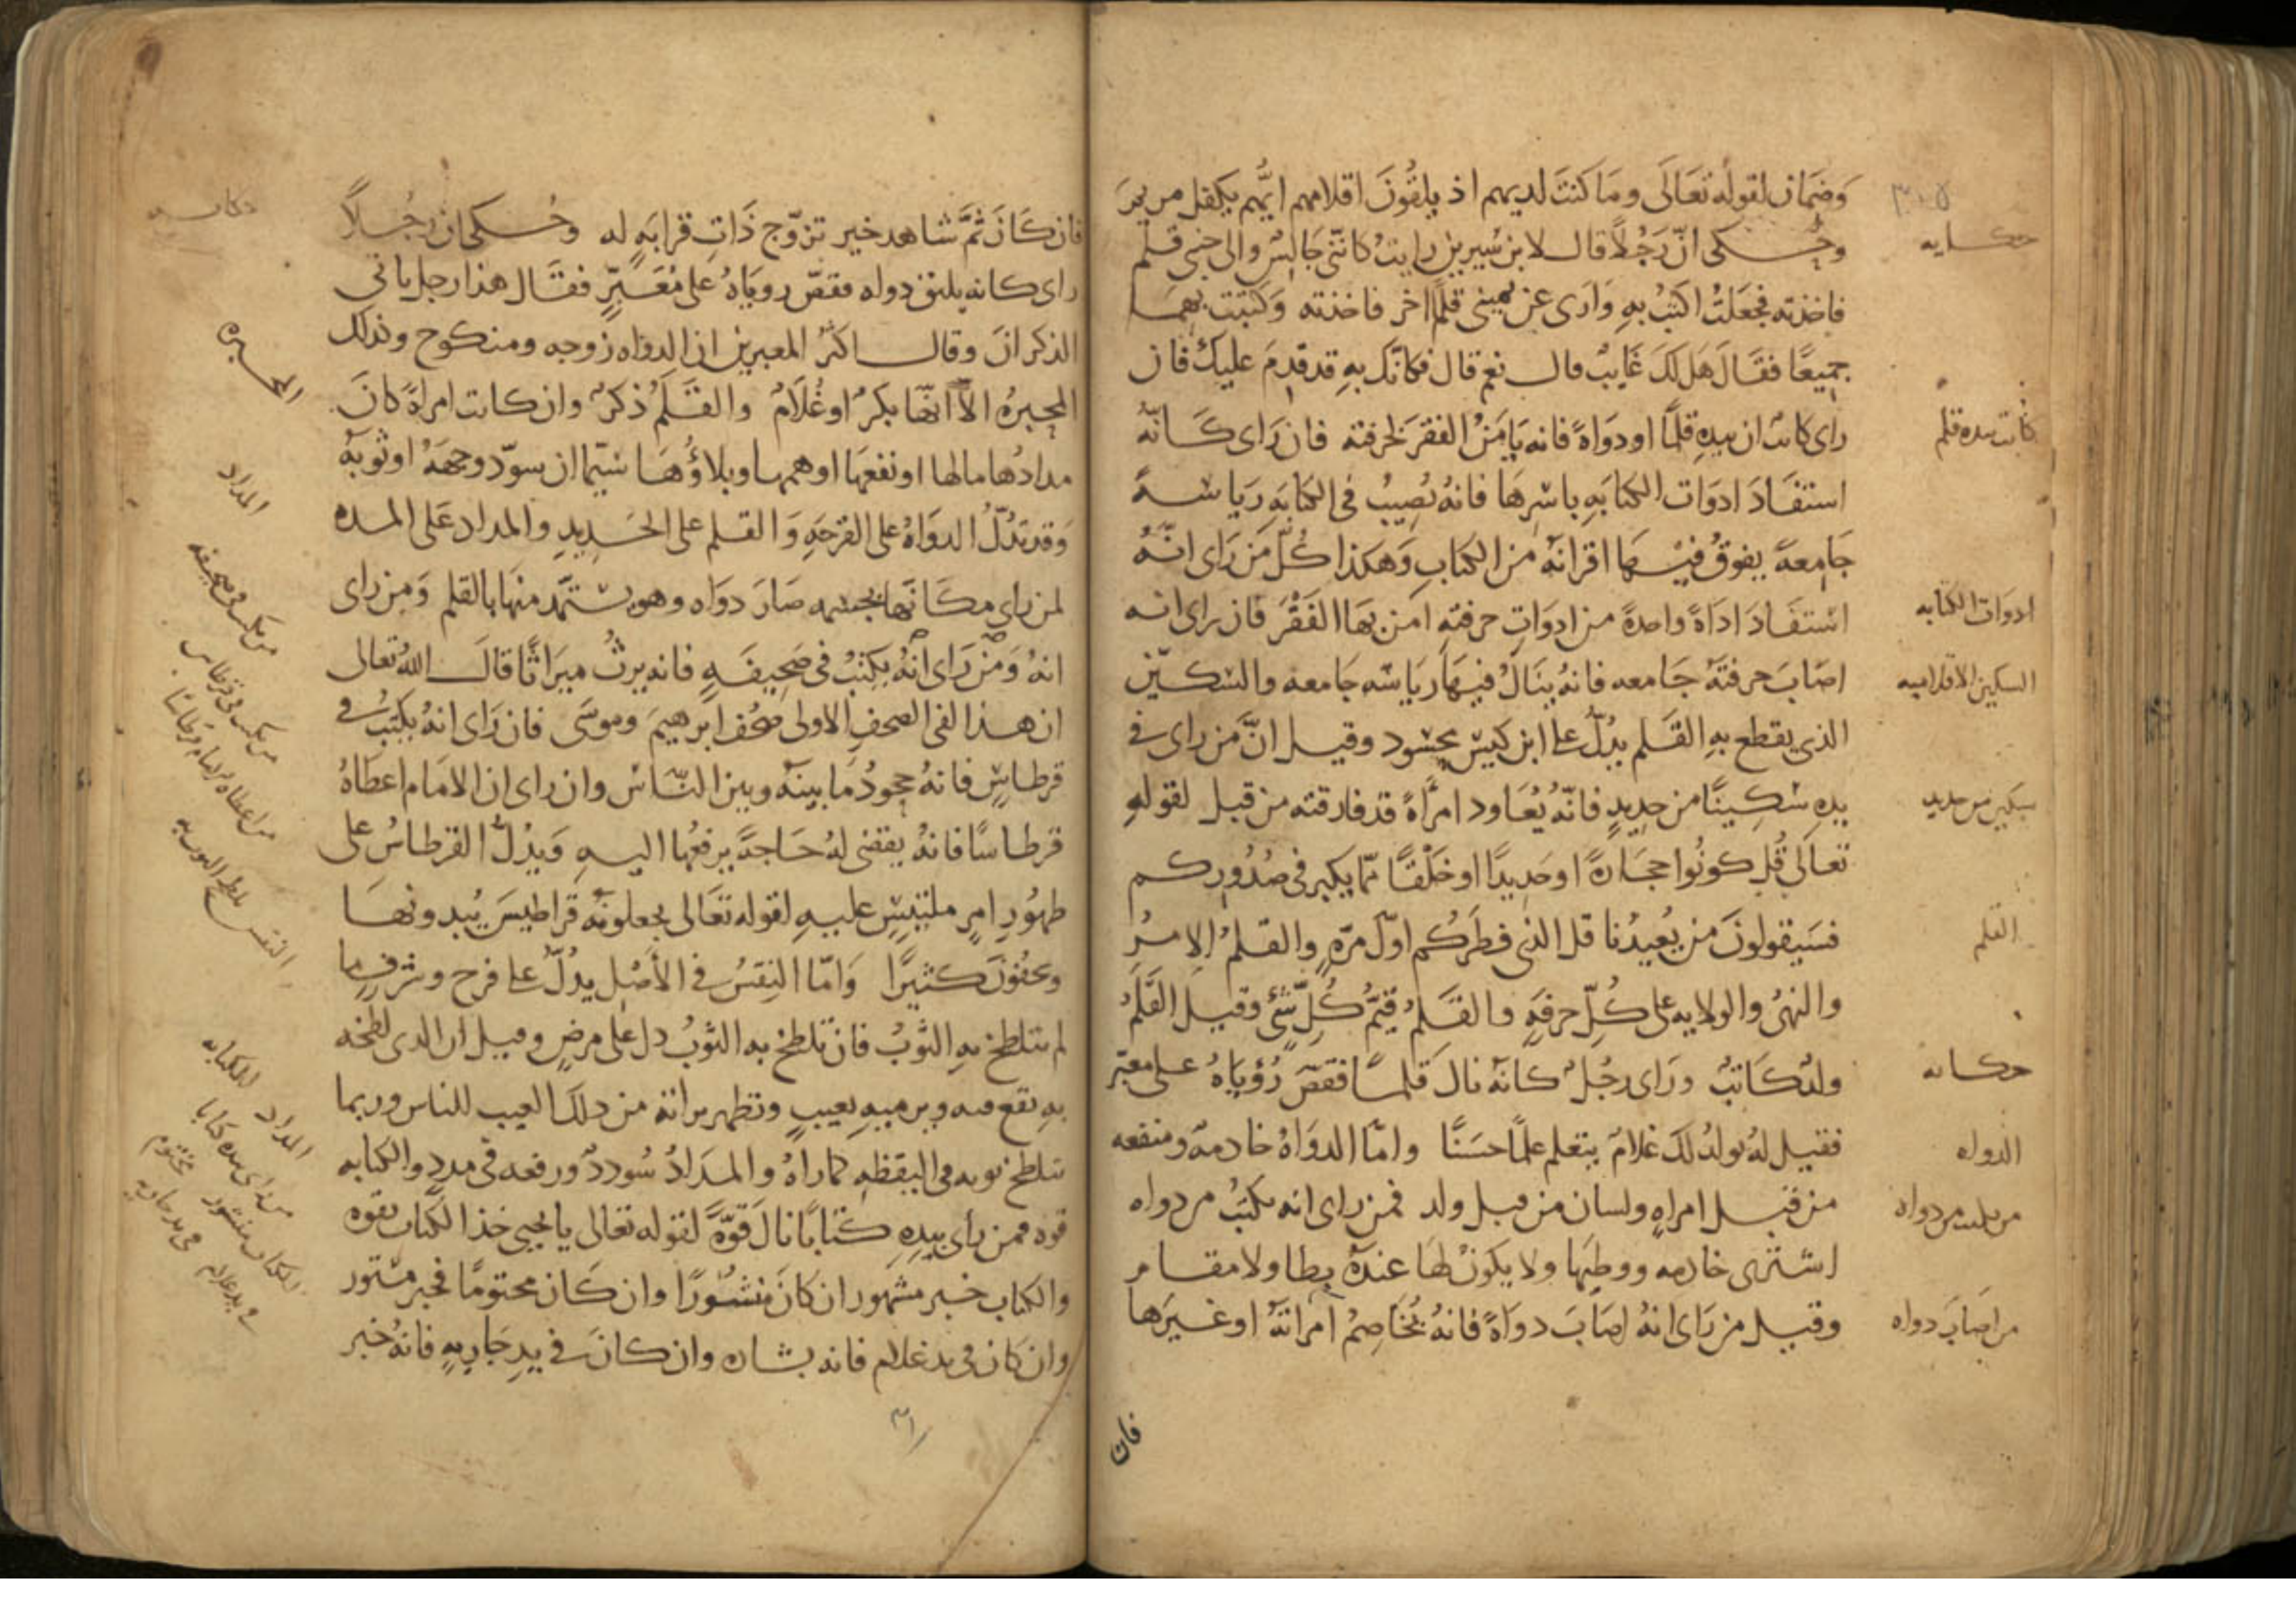 وَضمَان لقوله تعَالَى ومَا كنتَ لديهم اذ يلقُونَ اقلامهم ايّهم يكفل مريمَ
وحُكى انّ رَجُلاً قال لابن سيرين رايتُ كانّنى جَالسٌ والى جنبى قلم
فاخذته فجعَلتُ اكتبُ بهِ وَارى عن يمينى قلمًا اخر فاخذته وَكتبت بهمَا
جميعًا فقَالَ هَل لكَ غَايبٌ قال نعم قال فكانّك بهِ قد قدِمَ عليكَ فان
راى كاتبٌ ان بيدهِ قلمًا او دوَاةً فانه يَامَنُ الفقرَ لحرفته فان رَاى كَانّهُ
استفَادَ ادوَات الكتابَهِ باسْرِهَا فانهُ يُصِيبُ فى الكتابَهِ رَياسَهً
جَامِعةً يفوقُ فيْهَا اقرانهُ من الكتابِ وَهكذا كُلّ مَن رَاى انّهُ
استفَادَ ادَاةً واحدةً من ادوَاتِ حرفتهِ امن بهَا الفَقْرَ فان راى انه
اصَابَ حرفتهُ جَامعه فانهُ ينَالُ فيهَا رَيَاسَه جَامعه والسّكّين
الذى يقطع بهِ القَلم يدُلّ على ابن كيّسٍ محسُود وقيل انّ مَن راى فى
يدِهِ سِكِينًا من حديدٍ فانّهُ يُعَاود امرأةً قد فارقته من قبل لقولهِ
تعالَى قُل كونُوا حجَارةً او حَديدًا او خَلْقًا ممّا يكبر فى صُدُوركم
فسَيقولونَ من يُعيدُنا قل الذى فطرَكُم اوّلَ مرّهٍ والقلمُ الامرُ
والنهىُ والولايه على كُلّ حرفهٍ والقَلمُ قيّمُ كُلّ شَئٍ وقيل القَلَمُ
ولدٌ كاتبٌ ورَاى رجُلٌ كانهُ نالَ قَلمًا فقصّ رُؤيَاهُ على معبّر
فقيل لهُ يولدُ لكَ غلامٌ يتعلم علمًا حسَنًا وامّا الدوَاهُ خادمهٌ ومنفعه
من قبَل امراهٍ ولسان من قبل ولد فمن راى انه يكتبُ من دواه
اشترى خادمه ووطيهَا ولا يكونُ لهَا عندهُ بطا ولا مقام
وقيل من رَاى انهُ اصَابَ دواةً فانهُ يُخَاصِمُ امراتهُ او غيرَها
فان
حكايه
كاتب بيده قلم
ادوات الكتابه
السكين الاقلاميه
سكين من حديد
القلم
حكايه
الدواه
من يكتب من دواه
من اصَابَ دواه
فان كَانَ ثمَّ شاهد خير تزوّج ذَاتِ قرابَهٍ له وحُكى ان رجُلاً
راى كانه يليق دواه فقصّ روياهُ على مُعَبّرٍ فقَال هذا رجل ياتى
الذكرانَ وقال اكثرُ المعبرين ان الدواه زوجه ومنكوح وكذلك
المحبرهُ الاّ انّها بكرٌ او غُلَامٌ والقَلَمُ ذكرٌ وان كانت امراةً كانَ
مدادُها مالها او نفعهَا او همها وبلاؤُهَا سيّما ان سوّد وجههُ او ثوبهُ
وَقد تدُلّ الدوَاهُ على القرحَهِ وَالقلم على الحَديدِ والمداد على المده
لمن راى مكَانَها بجسمه صَارَ دوَاه وهو يستمّد منهَا بالقلم وَمن راى
انهُ وَمَن رَاى انهُ يكتبُ فى صَحيفَهٍ فانه يرثُ ميرَاثًا قالَ اللهُ تعالى
ان هذا لفى الصحفِ الاولى صُحُف ابرهيمَ وموسَى فان رَاى انهُ يكتبُ فى
قرطاسٍ فانهُ جحودُ مَا بينهُ وبين النّاس وان راى ان الامَام اعطَاهُ
قرطاسًا فانهُ يقضى لهُ حَاجةً يرفعُها اليهِ وَيدُلُ القرطاسُ على
ظهُورِ امرٍ ملتبِسٍ عليهِ لقوله تعَالى يجعلونهُ قراطيسَ يُبدونهَا
وبخفُونَ كثيرًا وَامّا النِقسُ فى الاصْل يدُلّ على فرح وشرف ما
لم يتلطخ بهِ الثوبُ فان تلطخ به الثوبُ دل على مرضٍ وقيل ان الذى لطخه
بهِ يقع فيه ويرميهِ بعيبٍ وتظهر براته من ذلك العيب للناس وربما
تلطخ ثوبه فى اليقظهِ كما راهُ والمدَادُ سُوددٌ ورفعه فى مددٍ والكتابه
قوه فمن رأى بيدِهِ كتَابًا نالَ قوّةً لقوله تعالى يا يحيى خذ الكتاب بقوه
والكتاب خبر مشهور ان كانَ منشُورًا وان كَان مختومًا فخبر مستور
وان كان فى يد غلام فانه بشاره وان كانَ فى يدِ جَاريهٍ فانهُ خبر
حكايه
المحبره
المداد
من يكتب فى صحيفه
من يكتب فى قرطاس
من اعطاه الامام قرطاسًا
المداد الكتابه
من رأى بيده كتابا